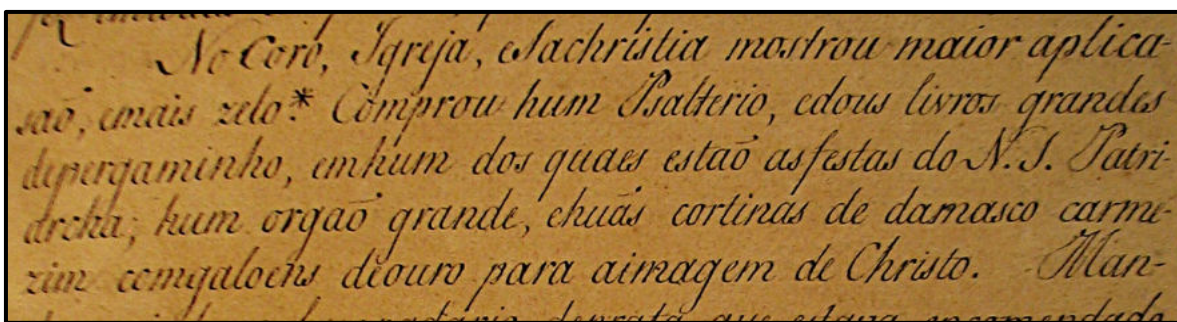 No Coro, Igreja, eSachristia mostrou maior aplica-
saõ, emais zelo.* Comprou hum Psalterio, edous livros grandes
depergaminho, emhum dos quaes estaõ asfestas do N. S. Patri-
archa; hum orgaõ grande, ehuãs cortinas de damasco carme-
zim comgaloens deouro para aimagem de Christo. Man-
deprata que estava encomendado